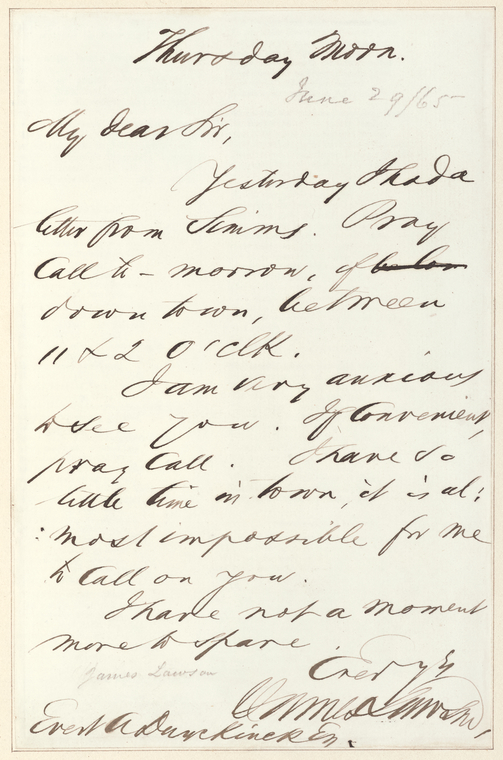 Thursday Noon.
June 29/65
My dear Sir,
Yesterday I had a
letter from Simms. Pray
Call to-morrow, if
down town, between
11 & 2 O'Clk.
I am very anxious
to see you. If Convenient,
pray Call. I have so
little time in town, it is al:
:most impossible for me
to Call on you.
I have not a moment
more to spare.
Ever yrs
James Lawson
James Lawson,
Evert A Duyckinck Esq.